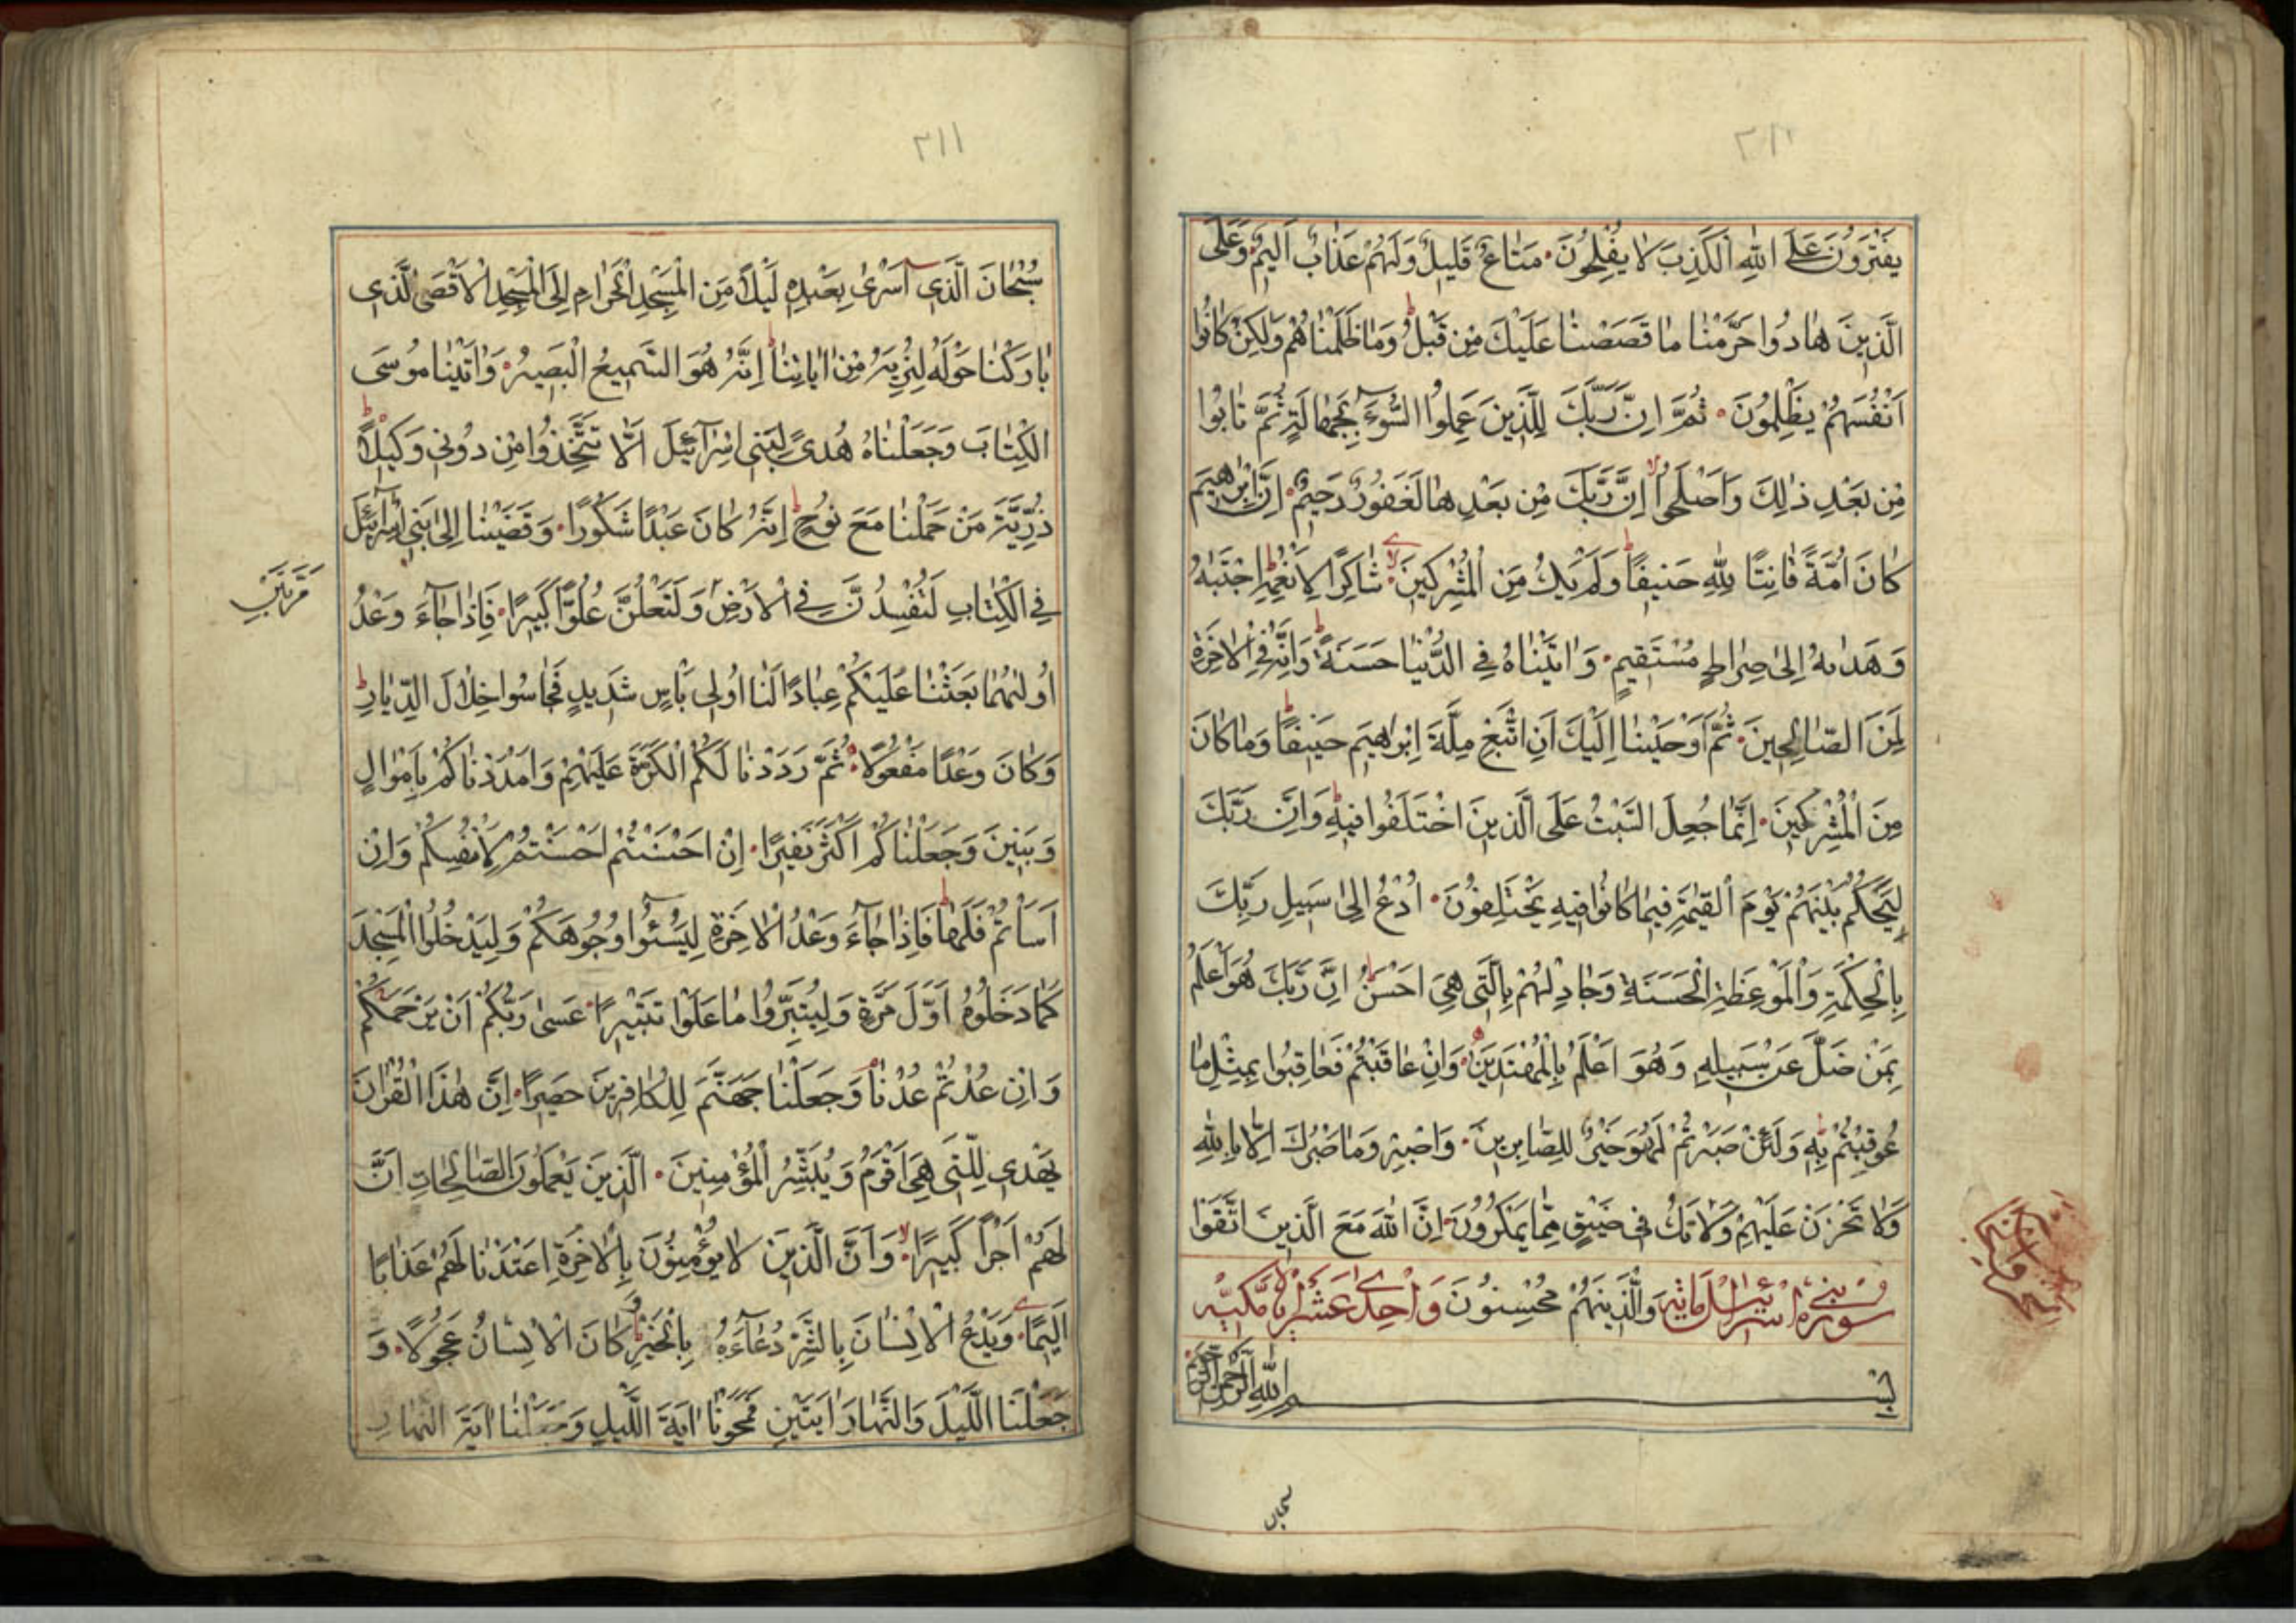 ٣١١
يَفْتَرُونَ عَلَى اللّٰهِ الْكَذِبَ لَا يُفْلِحُونَ مَتَاعٌ قَلِيلٌ وَلَهُمْ عَذَابٌ اَلِيمٌ وَعَلَى
الَّذِينَ هَادُوا حَرَّمْنَا مَا قَصَصْنَا عَلَيْكَ مِنْ قَبْلُ وَمَا ظَلَمْنَاهُمْ وَلٰكِنْ كَانُوا
اَنْفُسَهُمْ يَظْلِمُونَ ثُمَّ اِنَّ رَبَّكَ لِلَّذِينَ عَمِلُوا السُّوٓءَ بِجَهَالَةٍ ثُمَّ تَابُوا
مِنْ بَعْدِ ذٰلِكَ وَاَصْلَحُوا اِنَّ رَبَّكَ مِنْ بَعْدِهَا لَغَفُورٌ رَحِيمٌ اِنَّ اِبْرٰهِيمَ
كَانَ اُمَّةً قَانِتًا لِلّٰهِ حَنِيفًا وَلَمْ يَكُ مِنَ الْمُشْرِكِينَ شَاكِرًا لِاَنْعُمِهِ اِجْتَبٰهُ
وَهَدٰىهُ اِلٰى صِرَاطٍ مُسْتَقِيمٍ وَاٰتَيْنَاهُ فِي الدُّنْيَا حَسَنَةً وَاِنَّهُ فِي الْاٰخِرَةِ
لَمِنَ الصَّالِحِينَ ثُمَّ اَوْحَيْنَا اِلَيْكَ اَنِ اتَّبِعْ مِلَّةَ اِبْرٰهِيمَ حَنِيفًا وَمَا كَانَ
مِنَ الْمُشْرِكِينَ اِنَّمَا جُعِلَ السَّبْتُ عَلَى الَّذِينَ اخْتَلَفُوا فِيهِ وَاِنَّ رَبَّكَ
لَيَحْكُمُ بَيْنَهُمْ يَوْمَ الْقِيٰمَةِ فِيمَا كَانُوا فِيهِ يَخْتَلِفُونَ اُدْعُ اِلٰى سَبِيلِ رَبِّكَ
بِالْحِكْمَةِ وَالْمَوْعِظَةِ الْحَسَنَةِ وَجَادِلْهُمْ بِالَّتِي هِيَ اَحْسَنُ اِنَّ رَبَّكَ هُوَ اَعْلَمُ
بِمَنْ ضَلَّ عَنْ سَبِيلِهِ وَهُوَ اَعْلَمُ بِالْمُهْتَدِينَ وَاِنْ عَاقَبْتُمْ فَعَاقِبُوا بِمِثْلِ مَا
عُوقِبْتُمْ بِهِ وَلَئِنْ صَبَرْتُمْ لَهُوَ خَيْرٌ لِلصَّابِرِينَ وَاصْبِرْ وَمَا صَبْرُكَ اِلَّا بِاللّٰهِ
وَلَا تَحْزَنْ عَلَيْهِمْ وَلَا تَكُ فِي ضَيْقٍ مِمَّا يَمْكُرُونَ اِنَّ اللّٰهَ مَعَ الَّذِينَ اتَّقَوْا
سُورَةُ بَنِي اِسْرَائِيلَ مِائَة وَالَّذِينَ هُمْ مُحْسِنُونَ وَاَحَدَ عَشَرَ اٰيَة مَكِّيَّة
بِسْمِ اللّٰهِ الرَّحْمٰنِ الرَّحِيمِ
سُبْحَانَ
٣١١
سُبْحَانَ الَّذِي اَسْرٰى بِعَبْدِهِ لَيْلًا مِنَ الْمَسْجِدِ الْحَرَامِ اِلَى الْمَسْجِدِ الْاَقْصَى الَّذِي
بَارَكْنَا حَوْلَهُ لِنُرِيَهُ مِنْ اٰيَاتِنَا اِنَّهُ هُوَ السَّمِيعُ الْبَصِيرُ وَاٰتَيْنَا مُوسَى
الْكِتَابَ وَجَعَلْنَاهُ هُدًى لِبَنِي اِسْرَآئِيلَ اَلَّا تَتَّخِذُوا مِنْ دُونِي وَكِيلًا
ذُرِّيَّةَ مَنْ حَمَلْنَا مَعَ نُوحٍ اِنَّهُ كَانَ عَبْدًا شَكُورًا وَقَضَيْنَا اِلٰى بَنِي اِسْرَآئِيلَ
فِي الْكِتَابِ لَتُفْسِدُنَّ فِي الْاَرْضِ وَلَتَعْلُنَّ عُلُوًّا كَبِيرًا فَاِذَا جَآءَ وَعْدُ
مَرَّتَيْنِ
اُولٰهُمَا بَعَثْنَا عَلَيْكُمْ عِبَادًا لَنَا اُولِي بَاْسٍ شَدِيدٍ فَجَاسُوا خِلَالَ الدِّيَارِ
وَكَانَ وَعْدًا مَفْعُولًا ثُمَّ رَدَدْنَا لَكُمُ الْكَرَّةَ عَلَيْهِمْ وَاَمْدَدْنَاكُمْ بِاَمْوَالٍ
وَبَنِينَ وَجَعَلْنَاكُمْ اَكْثَرَ نَفِيرًا اِنْ اَحْسَنْتُمْ اَحْسَنْتُمْ لِاَنْفُسِكُمْ وَاِنْ
اَسَاْتُمْ فَلَهَا فَاِذَا جَآءَ وَعْدُ الْاٰخِرَةِ لِيَسُٓئُوا وُجُوهَكُمْ وَلِيَدْخُلُوا الْمَسْجِدَ
كَمَا دَخَلُوهُ اَوَّلَ مَرَّةٍ وَلِيُتَبِّرُوا مَا عَلَوْا تَتْبِيرًا عَسٰى رَبُّكُمْ اَنْ يَرْحَمَكُمْ
وَاِنْ عُدْتُمْ عُدْنَا وَجَعَلْنَا جَهَنَّمَ لِلْكَافِرِينَ حَصِيرًا اِنَّ هٰذَا الْقُرْاٰنَ
يَهْدِي لِلَّتِي هِيَ اَقْوَمُ وَيُبَشِّرُ الْمُؤْمِنِينَ الَّذِينَ يَعْمَلُونَ الصَّالِحَاتِ اَنَّ
لَهُمْ اَجْرًا كَبِيرًا وَاَنَّ الَّذِينَ لَا يُؤْمِنُونَ بِالْاٰخِرَةِ اَعْتَدْنَا لَهُمْ عَذَابًا
اَلِيمًا وَيَدْعُ الْاِنْسَانُ بِالشَّرِّ دُعَآءَهُ بِالْخَيْرِ وَكَانَ الْاِنْسَانُ عَجُولًا وَ
جَعَلْنَا اللَّيْلَ وَالنَّهَارَ اٰيَتَيْنِ فَمَحَوْنَا اٰيَةَ اللَّيْلِ وَجَعَلْنَا اٰيَةَ النَّهَارِ